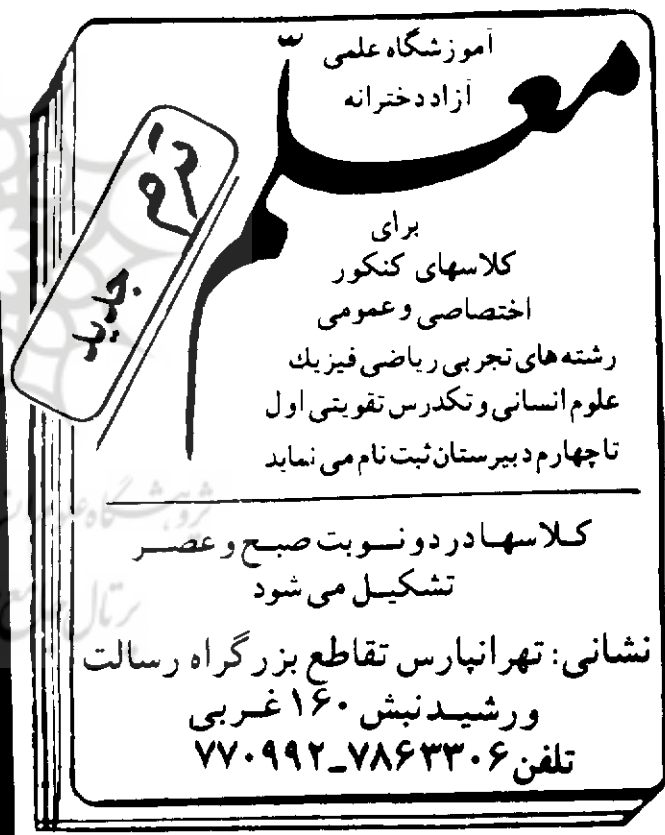 آموزشگاه علمی
آزاد دخترانه
معلم
ترم
جدید
برای
کلاسهای کنکور
اختصاصی و عمومی
رشته‌های تجربی ریاضی فیزیك
علوم انسانی و تکدرس تقویتی اول
تا چهارم دبیرستان ثبت نام می نماید
کلاسها در دو نوبت صبح و عصر
تشکیل می شود
نشانی: تهرانپارس تقاطع بزرگراه رسالت
ورشید نبش ۱۶۰ غربی
تلفن ۷۸۶۳۳۰۶_۷۷۰۹۹۲